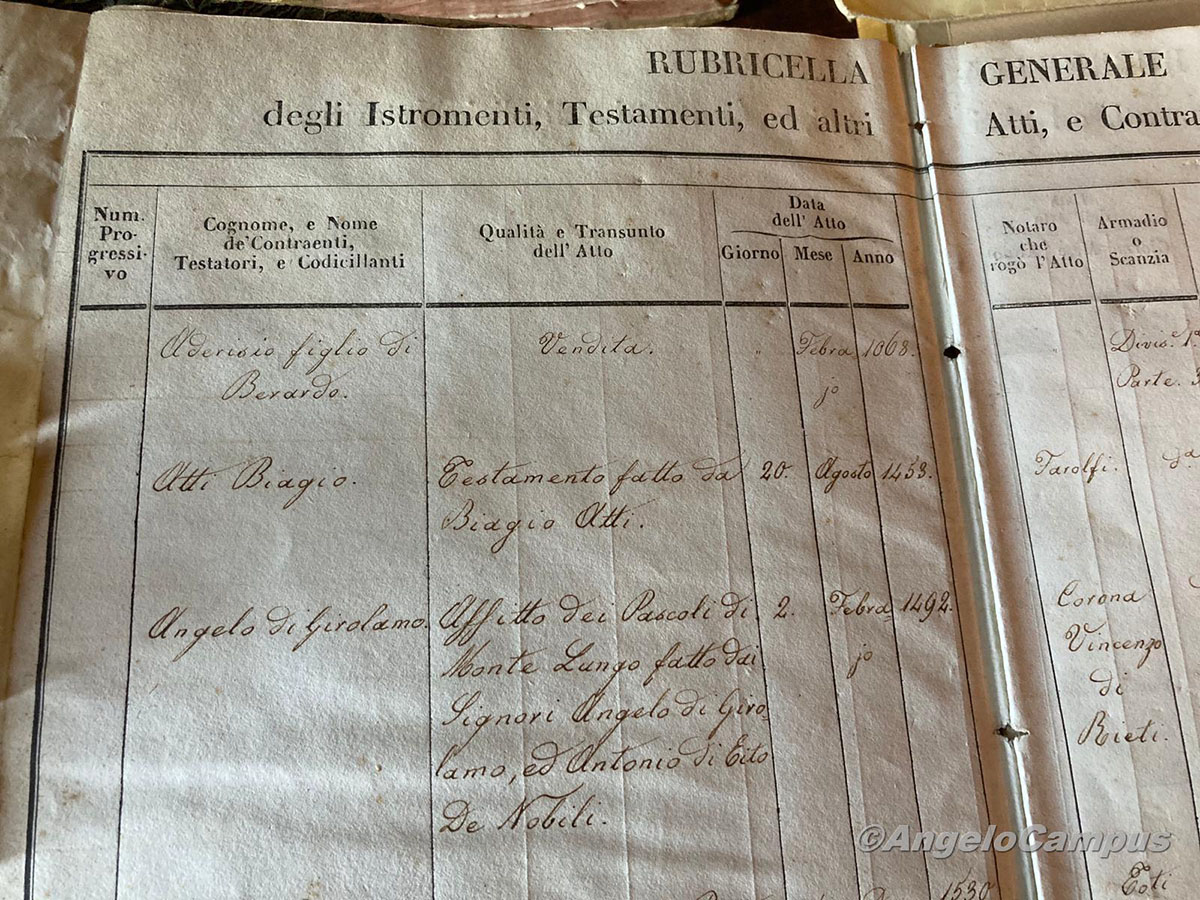 RUBRICELLA GENERALE
degli Istromenti, Testamenti, ed altri Atti, e Contra
Num.
Pro-
gressi-
vo
Cognome, e Nome
de' Contraenti,
Testatori, e Codicillanti
Qualità e Transunto
dell' Atto
Data
dell' Atto
Giorno Mese Anno
Notaro
che
rogò l'Atto
Armadio
o
Scanzia
Aderisio figlio di
Berardo.
Vendita.
" Febra 1068.
jo
Divis.e 1.a
Parte. 3
Atti Biagio.
Testamento fatto da
Biagio Atti.
20. Agosto 1453.
Tarolfi.
d.a
Angelo di Girolamo.
Affitto dei Pascoli di
Monte Lungo fatto dai
Signori Angelo di Giro=
lamo, ed Antonio di Tito
De Nobili.
2. Febra= 1492.
jo
Corona
Vincenzo
di
Rieti.
1530
Toti
©AngeloCampus